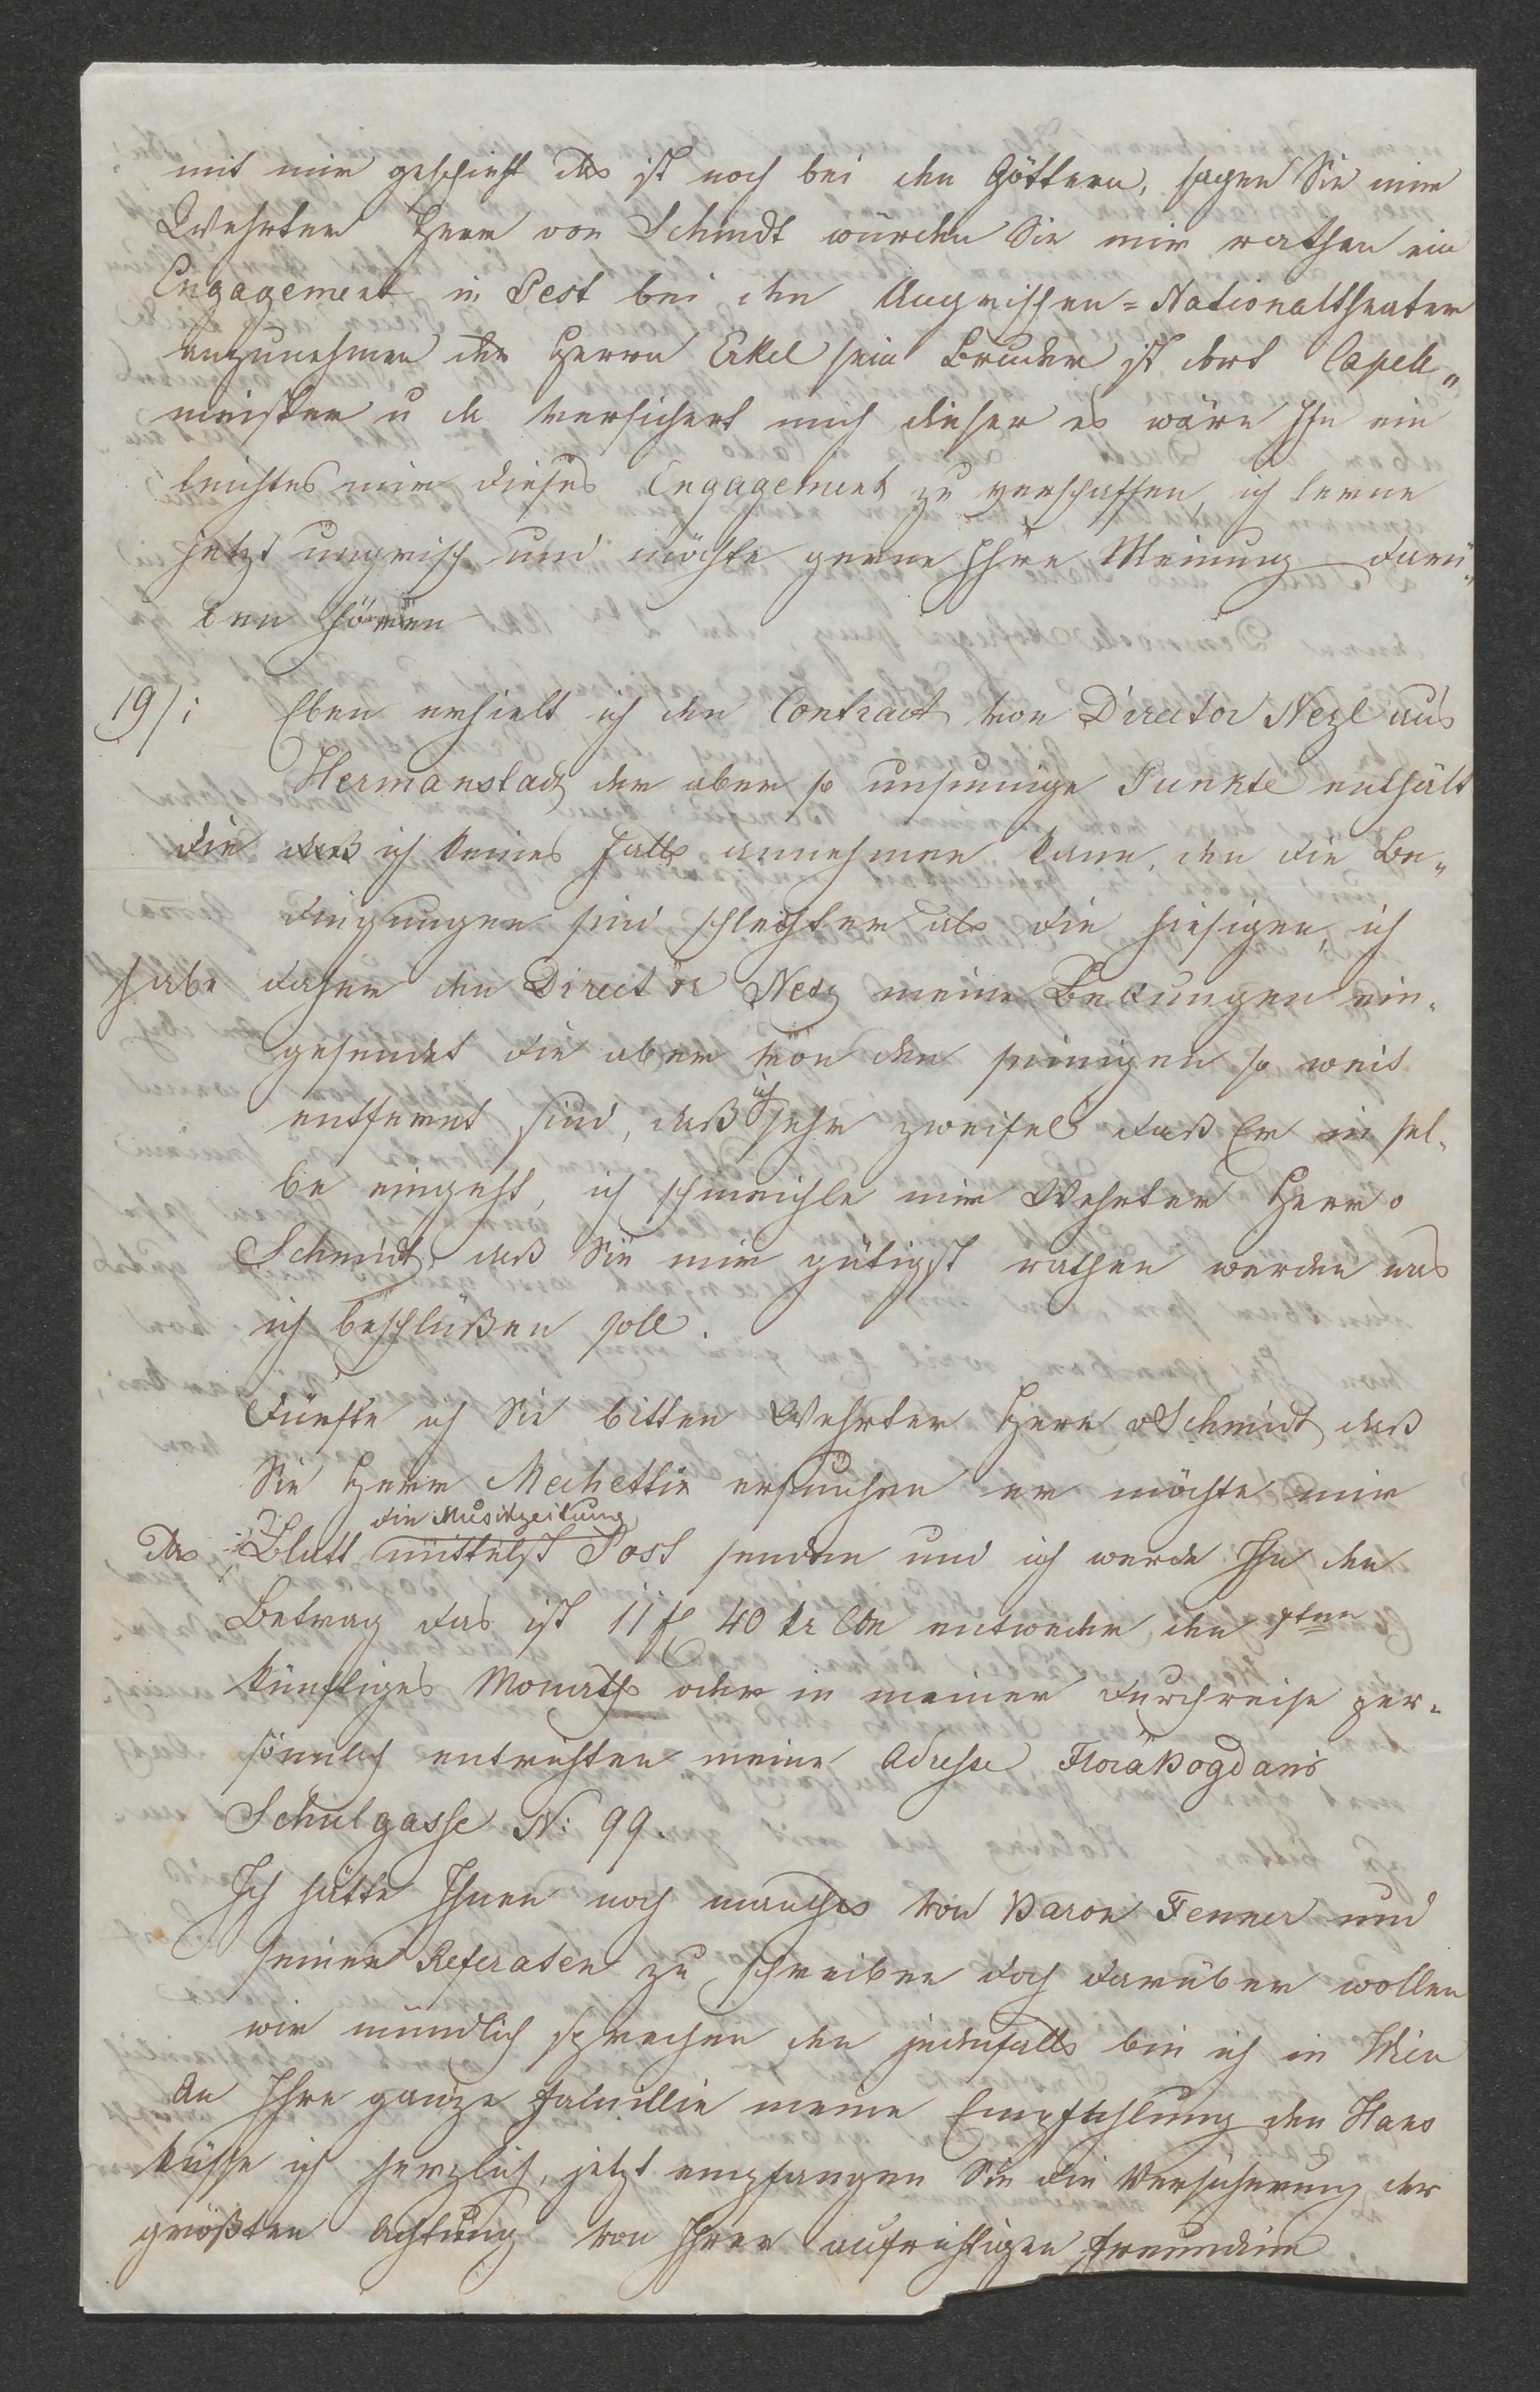 mit mir geschieht das ist noch bei den Göttern, sagen Sie mir
Wehrter Herr von Schmidt würden Sie mir rathen ein
Engagement in Pest bei den Ungrischen=Nationaltheater
anzunehmen des Herrn Erkel sein Bruder ist dort Capell„
meister u da versichert mich dieser es wäre Ihn ein
leichtes mir dieses Engagement zu verschaffen, ich lerne
jetzt ungrisch und möchte gerne Ihre Meinung darü„
ber hören
19/i Eben erhielt ich den Contract von Director Nezl aus
Hermanstadt der aber so unsinnige Punkte enthält
die daß ich keines Falls annehmen kann, den die Be„
dingungen sind schlechter als die hiesigen, ich
habe daher den Director Nezl meine Bedingungen ein-
gesendet die aber von den seinigen so weit
entfernt sind, daß ich sehr zweifel daß Er in sel-
be eingeht, ich schmeichle mir Wehrter Herr v
Schmidt daß Sie mir gütigst rathen werden was
ich beschlüßen soll.
Dürfte ich Sie bitten Wehrter Herr v Schmidt daß
Sie Herr Mechettie ersuchen er möchte mir
die Musikzeitung
das Blatt mittelst Post senden und ich werde Ihn den
Betrag das ist 11 f 40 kr CM entweder den 1ten
künftiges Monaths oder in meiner Durchreise per-
sönnlich entrichten meine Adresse Flora Bogdani
Schulgasse N: 99.
Ich hätte Ihnen noch manches von Baron Fenner und
seinen Referaten zu schreiben doch darüber wollen
wir mündlich sprechen den jedenfalls bin ich in Wien
An Ihre ganze Familie meine Empfehlung den Hans
küsse ich herzlich, jetzt empfangen Sie die Versicherung der
größten Achtung von Ihrer aufrichtigen Freundin